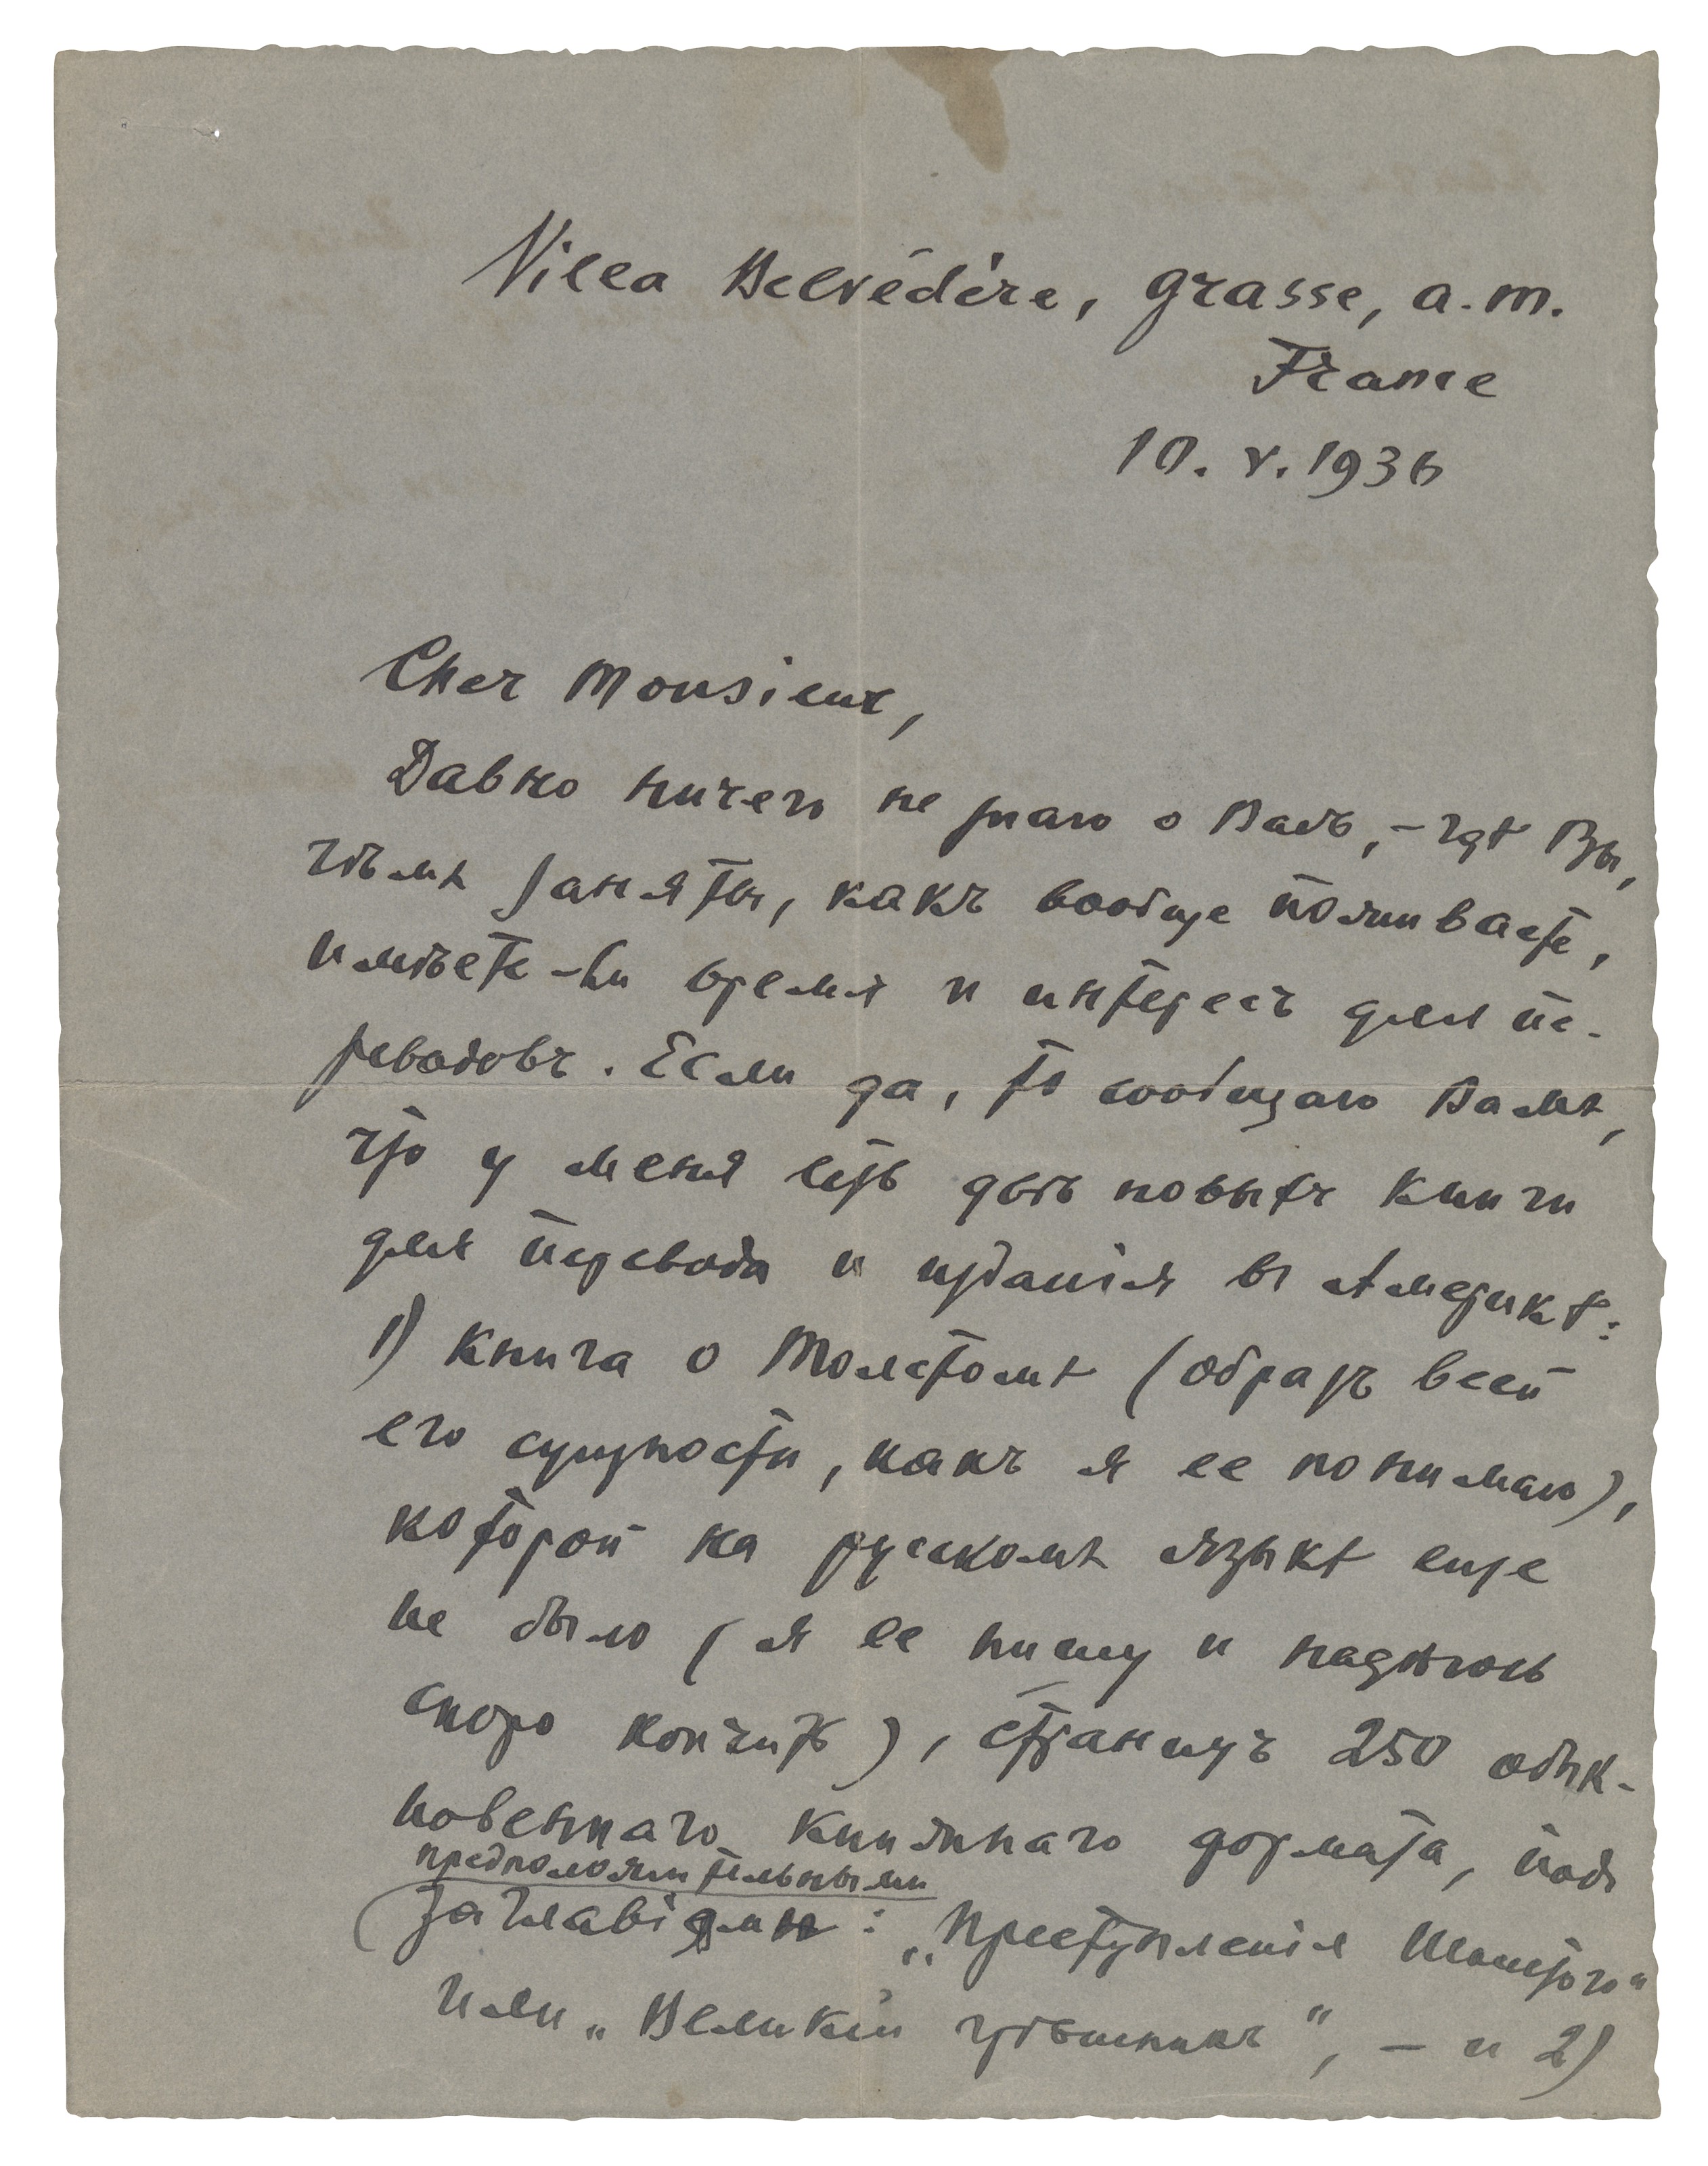 Villa Belvédère, Grasse, a.m.
France
10. V. 1936
Cher Monsieur,
Давно ничего не знаю о Васъ, – гдѣ Вы,
чѣмъ заняты, какъ вообще поживаете,
имѣете-ли время и интересъ для пе-
реводовъ. Если да, то сообщаю Вамъ,
что у меня есть двѣ новыхъ книги
для перевода и изданія въ Америкѣ:
1) книга о Толстомъ (образъ всей
его сущности, какъ я ее понимаю),
которой на русскомъ языкѣ еще
не было (я ее пишу и надѣюсь
скоро кончить), страницъ 250 обык-
новеннаго книжнаго формата, подъ
предположительными
заглавіями: „Преступленія Толстого"
или „Великій грѣшникъ", – и 2)